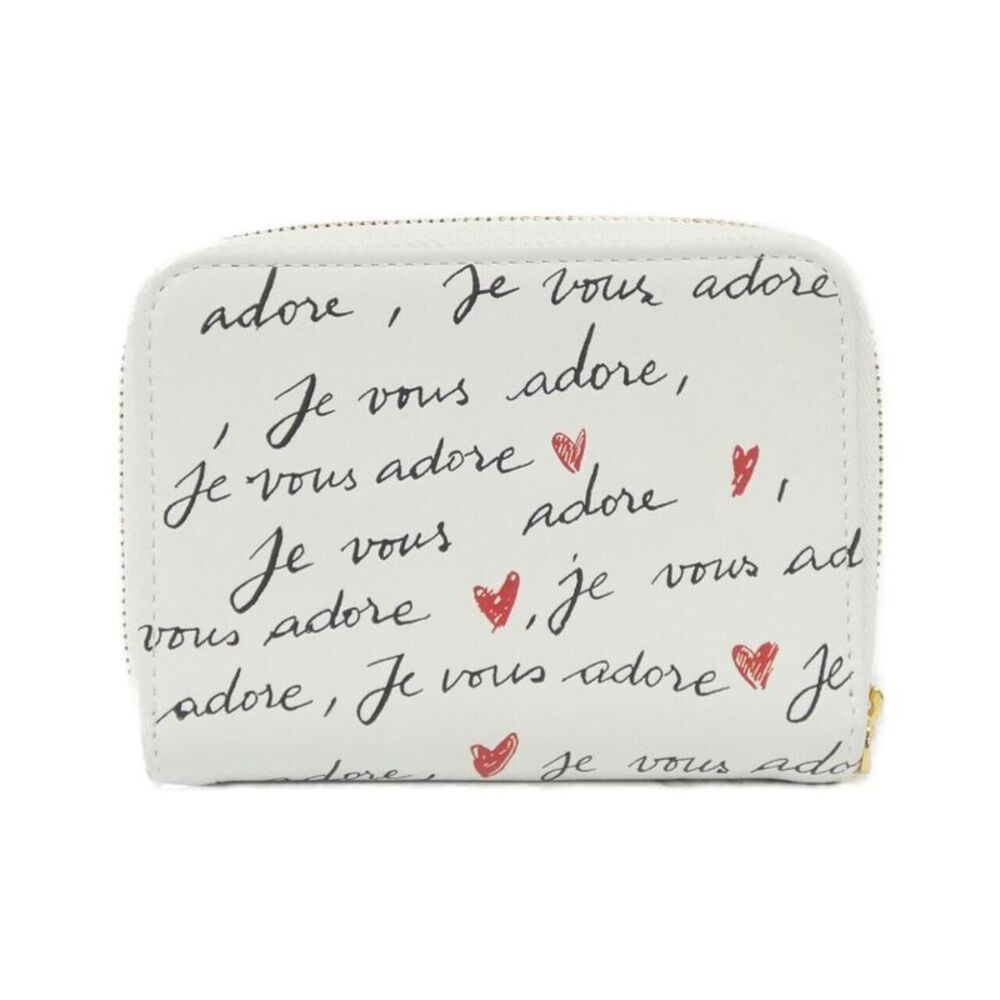 adore, Je vous adore
, Je vous adore,
Je vous adore
Je vous adore ,
vous adore , je vous ad
adore, Je vous adore Je
adore, je vous ado